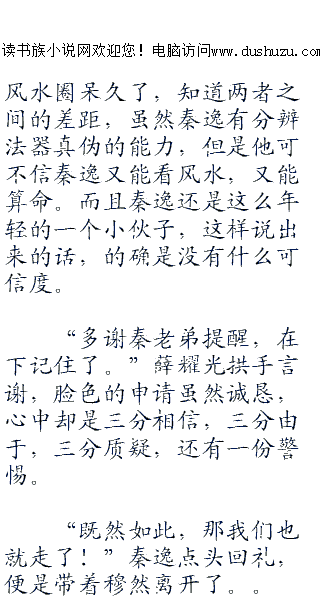 读书族小说网欢迎您！电脑访问www.dushuzu.com
风水圈呆久了，知道两者之
间的差距，虽然秦逸有分辨
法器真伪的能力，但是他可
不信秦逸又能看风水，又能
算命。而且秦逸还是这么年
轻的一个小伙子，这样说出
来的话，的确是没有什么可
信度。
“多谢秦老弟提醒，在
下记住了。”薛耀光拱手言
谢，脸色的申请虽然诚恳，
心中却是三分相信，三分由
于，三分质疑，还有一份警
惕。
“既然如此，那我们也
就走了！”秦逸点头回礼，
便是带着穆然离开了。。